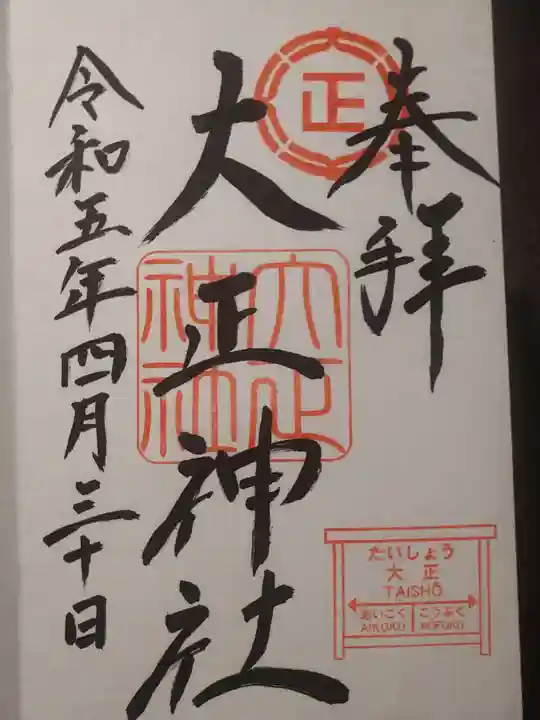 奉拝
正
大正神社
大正神社
令和五年四月三十日
たいしょう
大正
TAISHŌ
あいこく こうふく
AIKOKU KOFUKU